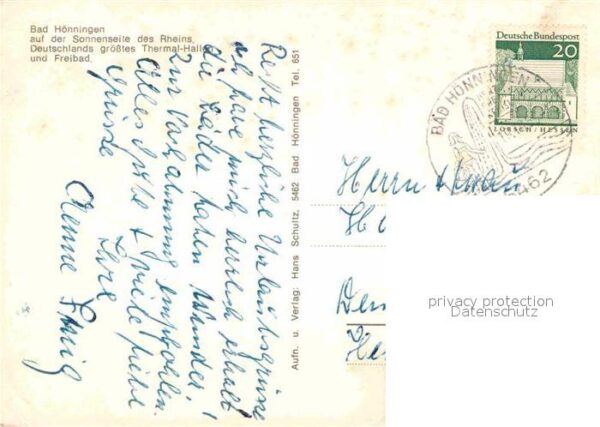 Bad Hönningen
auf der Sonnenseite des Rheins,
Deutschlands größtes Thermal-Hallen
und Freibad.
Recht herzliche Urlaubsgrüsse
ich habe mich herrlich erholt
die Bäder haben Wunder
zur Nachahmung empfohlen.
Alles Gute + viele liebe
Grüsse Ihre
Aufn. u. Verlag: Hans Schultz, 5462 Bad Hönningen Tel. 651
Deutsche Bundespost
20
LORSCH/HESSEN
BAD HÖNNINGEN
5462
Herrn
privacy protection
Datenschutz